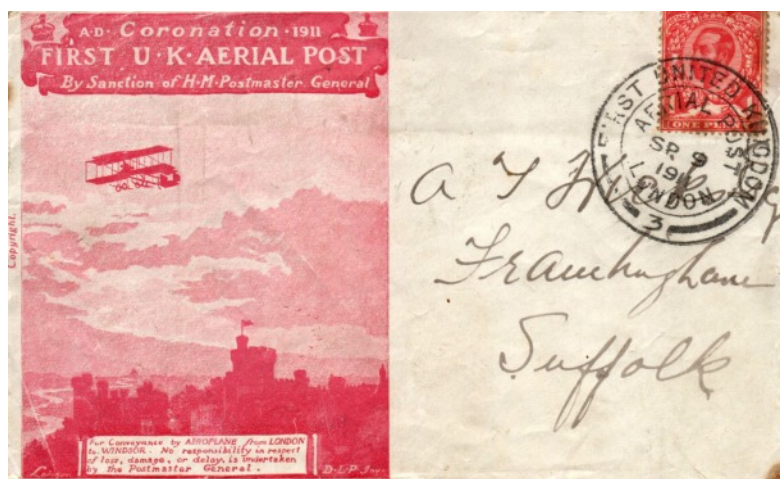 A·D· Coronation ·1911
FIRST U·K·AERIAL POST
By Sanction of H·M·Postmaster General
Copyright.
For Conveyance by AEROPLANE from LONDON
to WINDSOR. No responsibility in respect
of loss, damage, or delay, is undertaken
by the Postmaster General.
D·L·P·
ONE PENNY
FIRST UNITED KINGDOM
AERIAL POST
SP 9
1911
LONDON
3
A T
Framlingham
Suffolk